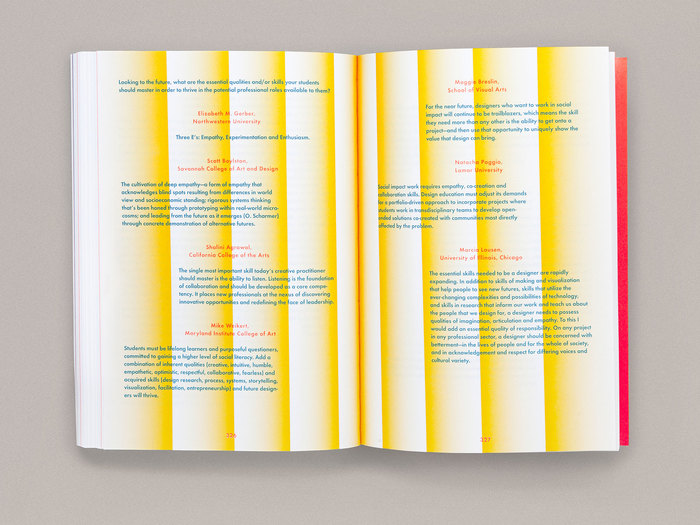 Looking to the future, what are the essential qualities and/or skills your students
should master in order to thrive in the potential professional roles available to them?
Elizabeth M. Gerber,
Northwestern University
Three E's: Empathy, Experimentation and Enthusiasm.
Scott Boylston,
Savannah College of Art and Design
The cultivation of deep empathy—a form of empathy that
acknowledges blind spots resulting from differences in world
view and socioeconomic standing; rigorous systems thinking
that's been honed through prototyping within real-world micro-
cosms; and leading from the future as it emerges (O. Scharmer)
through concrete demonstration of alternative futures.
Shalini Agrawal,
California College of the Arts
The single most important skill today's creative practitioner
should master is the ability to listen. Listening is the foundation
of collaboration and should be developed as a core compe-
tency. It places new professionals at the nexus of discovering
innovative opportunities and redefining the face of leadership.
Mike Weikert,
Maryland Institute College of Art
Students must be lifelong learners and purposeful questioners,
committed to gaining a higher level of social literacy. Add a
combination of inherent qualities (creative, intuitive, humble,
empathetic, optimistic, respectful, collaborative, fearless) and
acquired skills (design research, process, systems, storytelling,
visualization, facilitation, entrepreneurship) and future design-
ers will thrive.
326
Maggie Breslin,
School of Visual Arts
For the near future, designers who want to work in social
impact will continue to be trailblazers, which means the skill
they need more than any other is the ability to get onto a
project—and then use that opportunity to uniquely show the
value that design can bring.
Natacha Poggio,
Lamar University
Social impact work requires empathy, co-creation and
collaboration skills. Design education must adjust its demands
for a portfolio-driven approach to incorporate projects where
students work in transdisciplinary teams to develop open-
ended solutions co-created with communities most directly
affected by the problem.
Marcia Lausen,
University of Illinois, Chicago
The essential skills needed to be a designer are rapidly
expanding. In addition to skills of making and visualization
that help people to see new futures, skills that utilize the
ever-changing complexities and possibilities of technology,
and skills in research that inform our work and teach us about
the people that we design for, a designer needs to possess
qualities of imagination, articulation and empathy. To this I
would add an essential quality of responsibility. On any project
in any professional sector, a designer should be concerned with
betterment—in the lives of people and for the whole of society,
and in acknowledgement and respect for differing voices and
cultural variety.
327